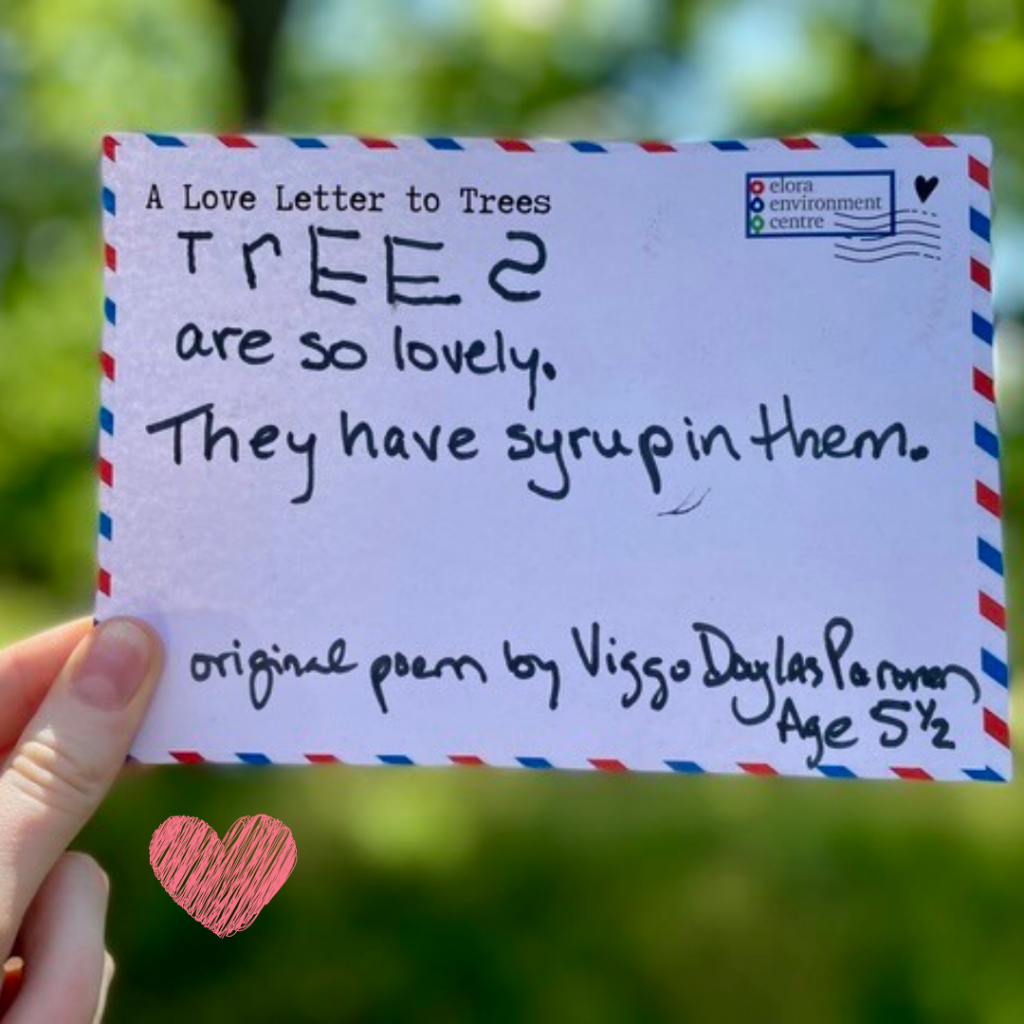 A Love Letter to Trees
elora
environment
centre
TrEES
are so lovely.
They have syrup in them.
original poem by Viggo Douglas Paronen
Age 5½